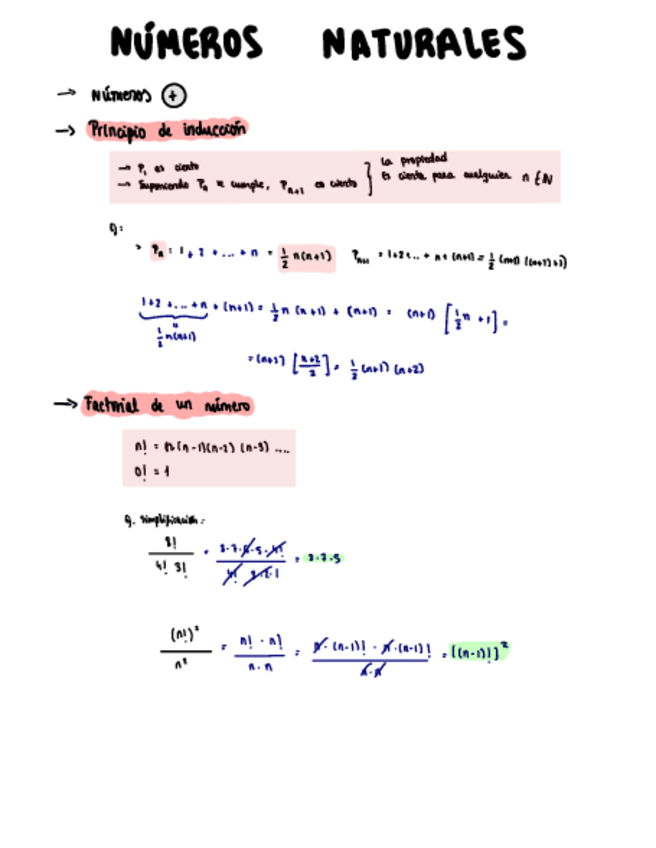 NÚMEROS NATURALES
→ NÚMEROS +
→ Principio de inducción
→ P₁ es cierto
→ Suponiendo Pₙ se cumple, Pₙ₊₁ es cierto } La propiedad es cierta para cualquier n ∈ ℕ
Ej:
> Pₙ : 1 + 2 + ... + n = 1/2 n(n+1) Pₙ₊₁ = 1+2+...+ n + (n+1) = 1/2 (n+1) ((n+1)+1)
1+2 + ... + n + (n+1) = 1/2 n (n+1) + (n+1) = (n+1) [1/2 n + 1] =
1/2 n(n+1)
= (n+1) [n+2/2] = 1/2 (n+1) (n+2)
→ Factorial de un número
n! = n(n-1)(n-2) (n-3) ....
0! = 1
Ej. Simplificación:
8!/4! 3! = 8·7·6·5·4!/4! 3·2·1 = 8·7·5
(n!)²/n² = n! · n!/n · n = n·(n-1)! · n·(n-1)!/n·n = [(n-1)!]²